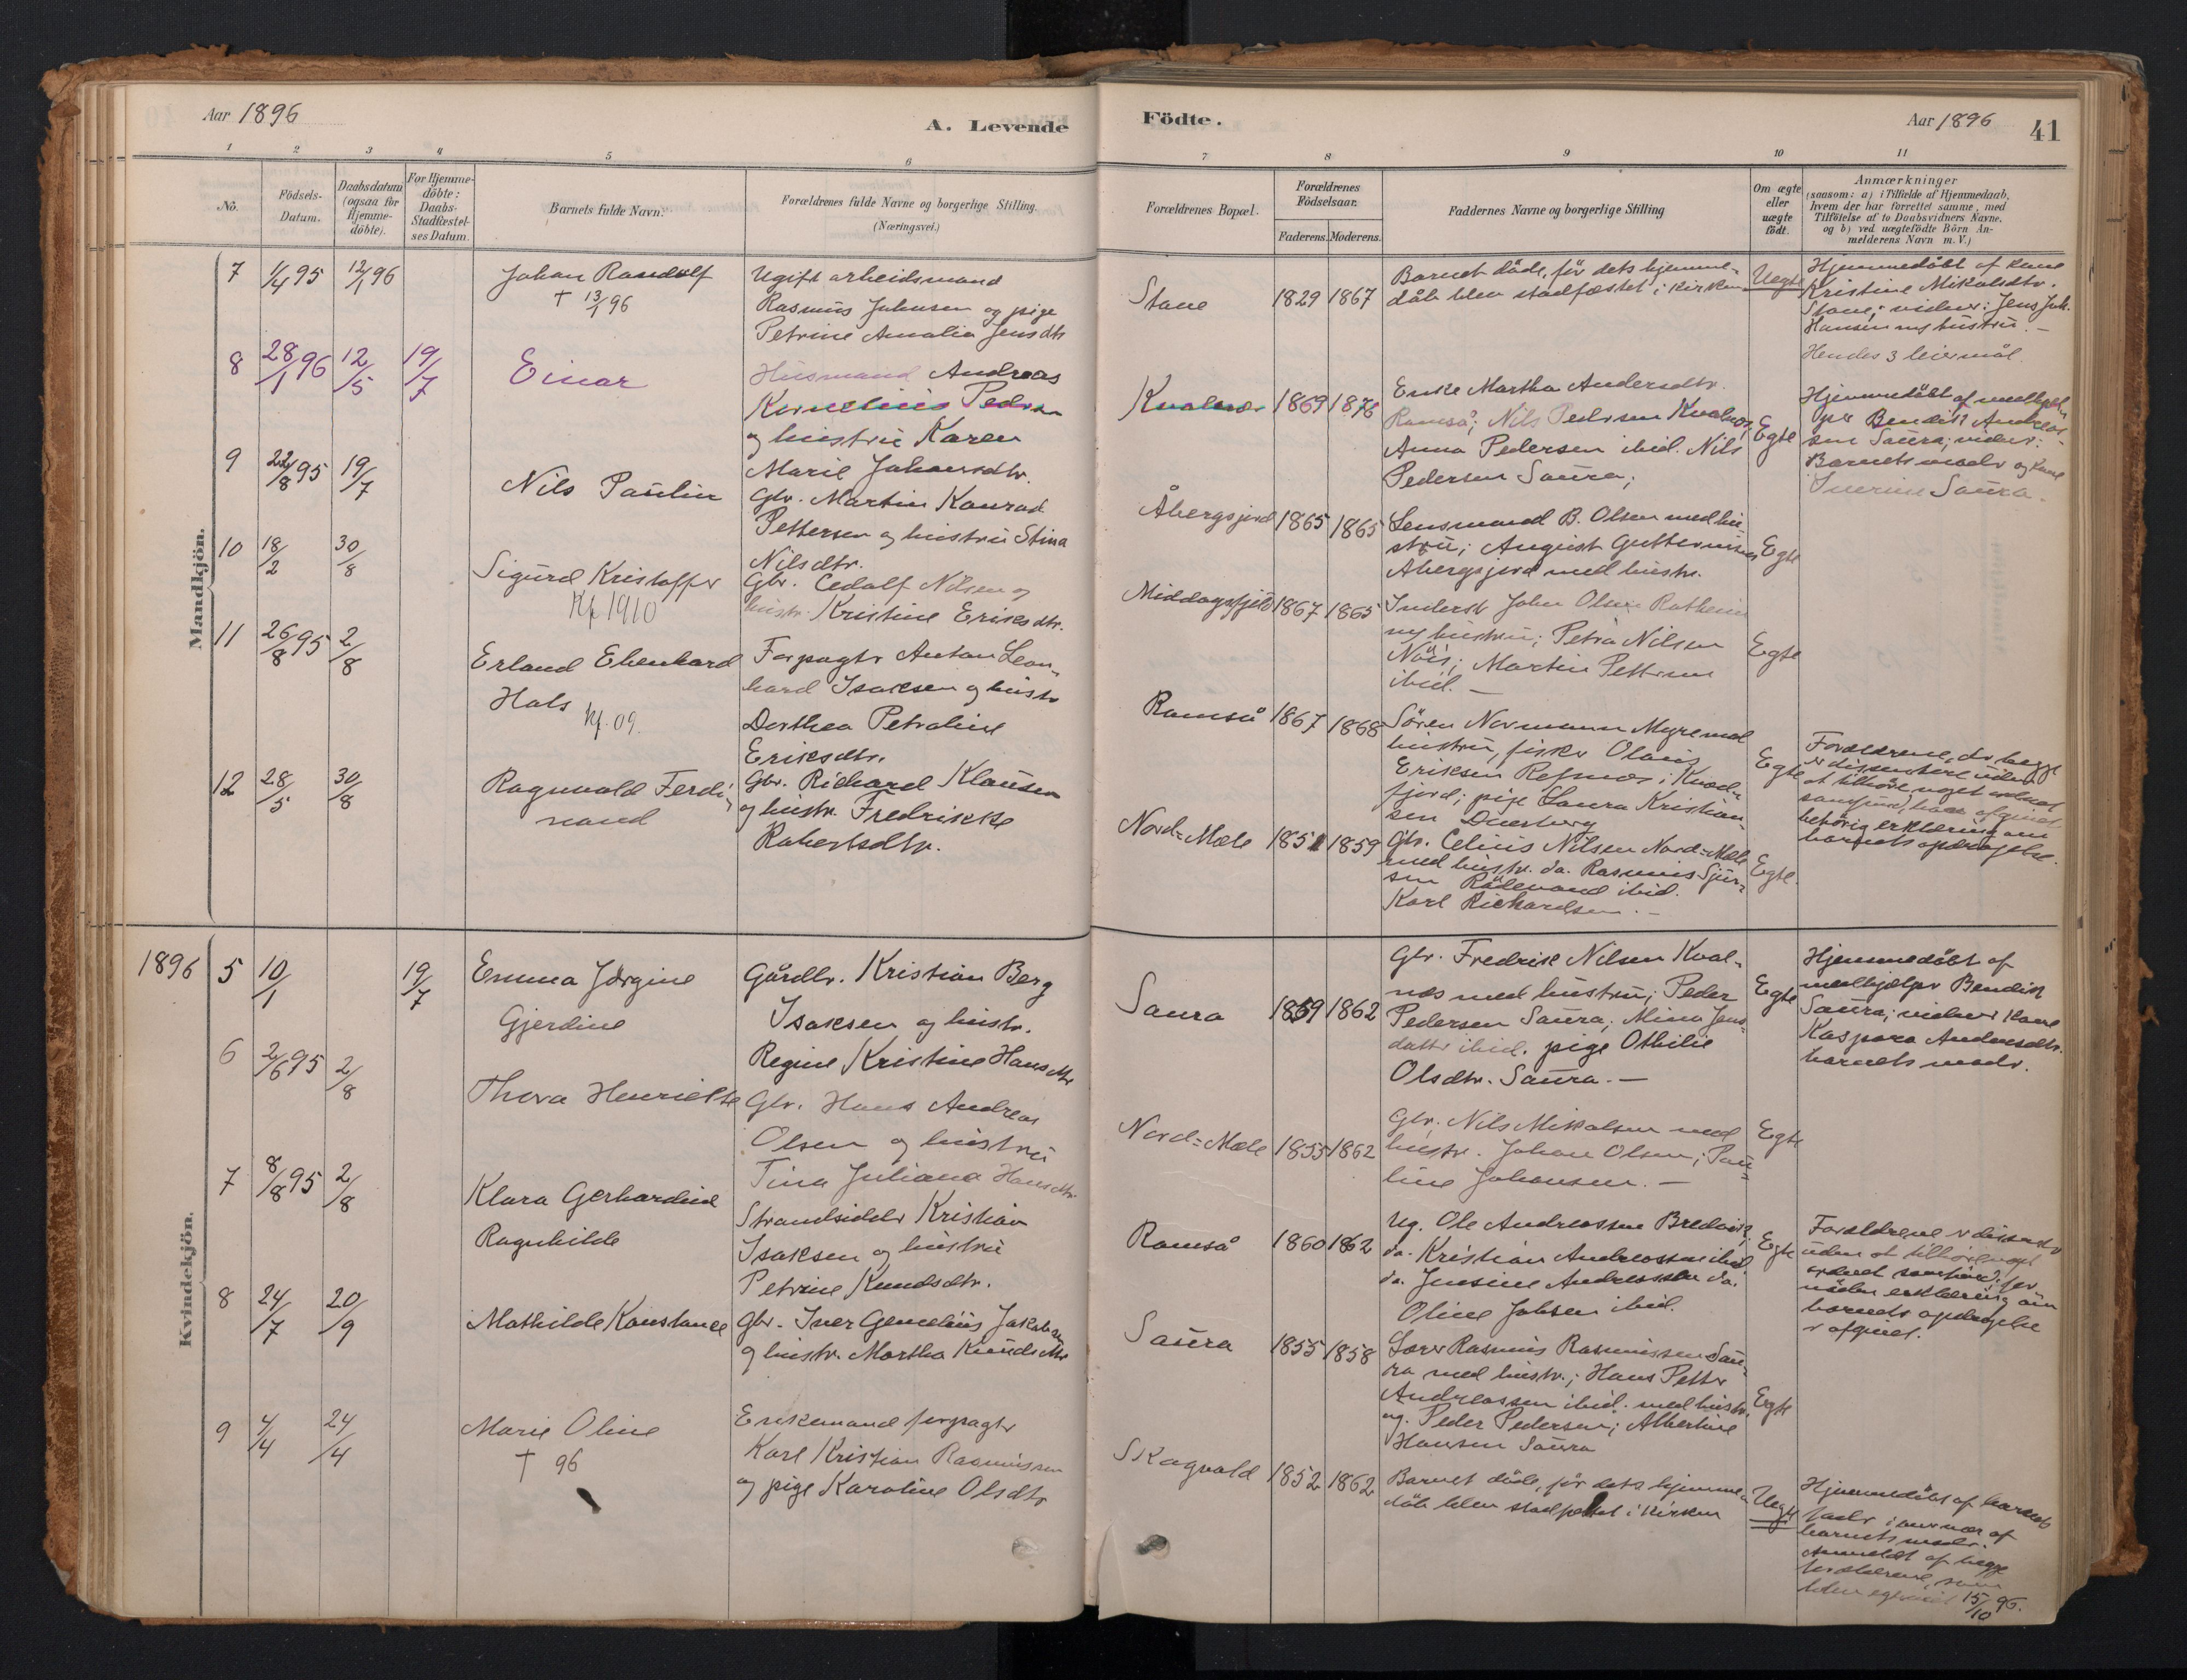 Aar 1896
A. Levende
Födte.
Aar 1896
41
1 2 3 4 5 6 7 8 9 10 11
No.
Födsels-
Datum.
Daabsdatum
(ogsaa for
Hjemme-
döbte).
For Hjemme-
döbte:
Daabs-
Stadfæstel-
ses Datum.
Barnets fulde Navn.
Forældrenes fulde Navne og borgerlige Stilling.
(Næringsvei.)
Forældrenes Bopæl.
Forældrenes
Födselsaar.
Faderens. Moderens.
Faddernes Navne og borgerlige Stilling
Om ægte
eller
uægte
födt.
Anmærkninger
(saasom: a) i Tilfælde af Hjemmedaab,
hvem der har forrettet samme, med
Tilföielse af to Daabsvidners Navne,
og b) ved uægtefödte Börn An-
melderens Navn m. V.)
Mandkjön.
7 1/4 95 12/1 96
Johan Randolf
† 13/1 96
Ugift arbeidsmand
Rasmus Johnsen og pige
Petrine Amalia Jensdtr
Stave 1829 1867
Barnet döde, för dets hjemme-
dåb blev stadfæstet i kirken
Uegte
Hjemmedöbt af kone
Kristine Mikalsdtr.
Stave; vidner: Jens Joh.
Hansen og hustru. —
Hendes 3 leiermål.
8 28/1 96 12/5 19/7
Einar
Husmand Andreas
Kornelius Peders
og hustru Karen
Marie Johansdtr.
Kvalnæs 1869 1876
Enke Martha Andersdtr.
Ramså; Nils Pedersen Kvalnæs,
Anna Pedersen ibid. Nils
Pedersen Saura;
Egte
Hjemmedöbt af medhjæl-
per Bendik Andreas-
sen Saura; vidner:
Barnets moder og kone
Saura.
9 22/8 95 19/7
Nils Paulin
Gbr. Martin Konrad
Pettersen og hustru Stina
Nilsdtr.
Åbergsjord 1865 1865
Lensmand B. Olsen med hu-
stru; August Guttormsen
Åbergsjord med hustr.
Egte
10 18/2 30/8
Sigurd Kristoffer
Kf 1910
Gbr. Cedolf Nilsen og
hustr. Kristine Eriksdtr.
Middagsfjeld 1867 1865
Inderst John Olsen
og hustru; Petra Nilsen
Nöis; Martin Pettersen
ibid. —
Egte
11 26/8 95 2/8
Erland Ebenhard
Hals
Kf. 09.
Forpagter Anton Leon-
hard Isaksen og hustr
Dorthea Petroline
Eriksdtr.
Ramså 1867 1868
Sören Normann Myre med
hustru, fisker Olaus
Eriksen Refsnæs i Kvæd-
fjord; pige Laura Kristian-
sen Dverberg
Egte
Forældrene, der begge
er dissentere uden
at tilhöre noget ordnet
samfund, har afgivet
behörig erklæring om
barnets opdragelse.
12 28/5 30/8
Ragnvald Ferdi-
nand
Gbr. Richard Klausen
og hustr. Fredrikke
Robertsdtr.
Nord-Mæle 1851 1859
Gbr. Celius Nilsen Nord-Mæle
med hustr. do. Rasmus Sjur-
sen ibid.
Karl Richardsen. —
Egte.
Kvindekjön.
1896 5 10/1 19/7
Emma Jørgine
Gjerdine
Gårdbr. Kristian Berg
Isaksen og hustr.
Regine Kristine Hansdtr
Saura 1859 1862
Gbr. Fredrik Nilsen Kval-
næs med hustru; Peder
Pedersen Saura; Mina Jens-
datter ibid. pige Othilie
Olsdtr. Saura. —
Egte
Hjemmedöbt af
medhjælper Bendik
Saura; vidner kone
Kaspara Andersdtr.
barnets moder.
6 2/6 95 2/8
Thora Henriette
Gbr. Hans Andreas
Olsen og hustru
Tina Juliana Hansdtr.
Nord-Mæle 1853 1862
Gbr. Nils Mikalsen med
hustr. Johan Olsen; Pau-
line Johansen. —
Egte
7 8/8 95 2/8
Klara Gerhardine
Ragnhilde
Strandsidder Kristian
Isaksen og hustru
Petrine Knudsdtr.
Ramså 1860 1862
Ug. Ole Andreassen Bredvik,
do. Kristian Andreassen ibid.
do. Jensine Andreassen do.
Oline Johsen ibid.
Egte
Forældrene er dissenter
uden at tilhöre noget
ordnet samfund; for-
nöden erklæring om
barnets opdragelse
er afgivet.
8 24/7 20/9
Mathilde Konstance
Gbr. Iver Gemelius Jakobsen
og hustr. Martha Knudsdtr
Saura 1855 1858
Lærer Rasmus Rasmussen Sau-
ra med hustr.; Hans Petter
Andreassen ibid. med hustr.
ug. Peder Pedersen; Albertine
Hansen Saura
Egte
9 4/4 24/4
Marie Oline
† 96
Enkemand forpagter
Karl Kristian Rasmussen
og pige Karoline Olsdtr
Skogvold 1852 1862
Barnet döde, för dets hjemme-
dåb blev stadfæstet i kirken
Uegte
Hjemmedöbt af barnets
fader i nærvær af
barnets moder.
Anmeldt af begge
forældrene, som
blev egteviet 15/10 96.